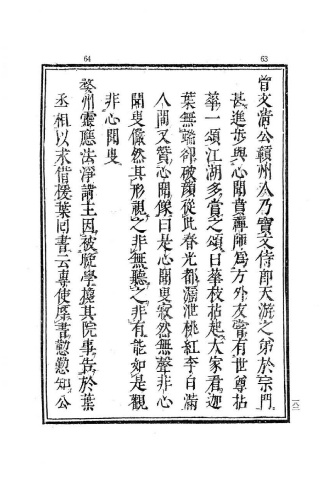 64
63
曾文清公贛州人乃寶文侍郎天游之弟於宗門
甚進步與心聞賁禪師為方外友嘗有世尊拈
華一頌江湖多賞之頌曰華枝拈起大家看迦
葉無端卻破顏從此春光都漏泄桃紅李白滿
人間又贊心聞像曰是心聞叟寂然無聲非心
聞叟儼然其形視之非無聽之非有能如是觀
非心聞叟
婺州靈應法淨講主因被庭學攙其院事告於葉
丞相以求借援葉回書云專使辱書懃懃知公